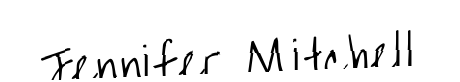 Jennifer Mitchell